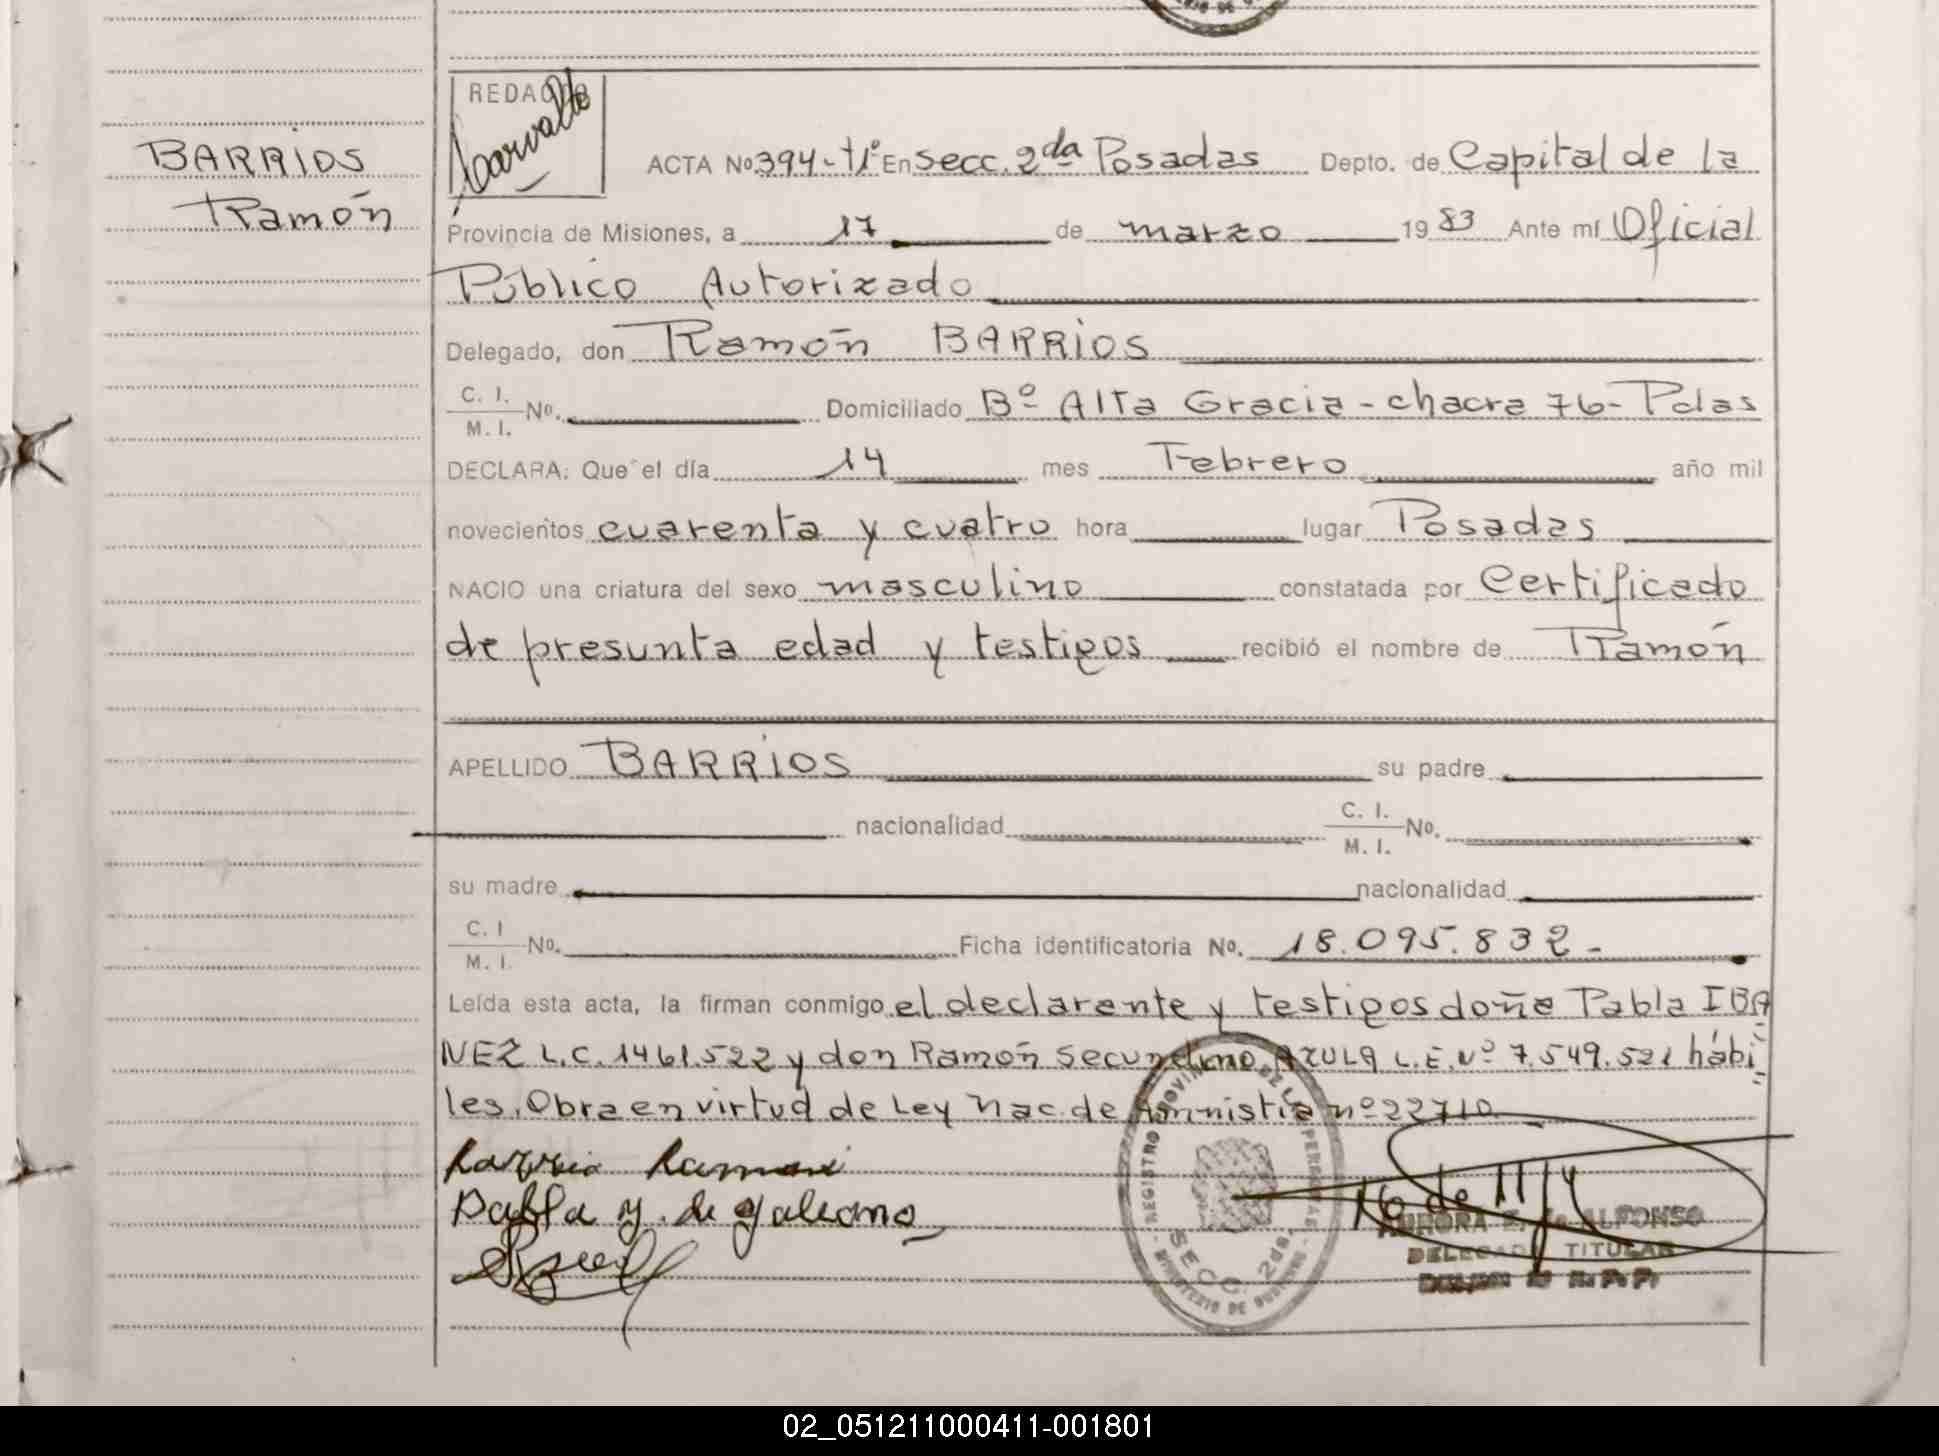 BARRIOS
Ramón
REDACTO
ACTA Nº 394-tº1º En Secc. 2da Posadas Depto. de Capital de la
Provincia de Misiones, a 17 de marzo 1983 Ante mí Oficial
Público Autorizado
Delegado, don Ramón BARRIOS
C. I.
M. I. Nº. Domiciliado Bº Alta Gracia - chacra 76 - Pdas
DECLARA: Que el día 14 mes Febrero año mil
novecientos cuarenta y cuatro hora lugar Posadas
NACIO una criatura del sexo masculino constatada por Certificado
de presunta edad y testigos recibió el nombre de Ramón
APELLIDO BARRIOS su padre
nacionalidad C. I.
M. I. Nº.
su madre nacionalidad
C. I
M. I. Nº. Ficha identificatoria Nº. 18.095.832-
Leída esta acta, la firman conmigo el declarente y testigos doña Pabla IBA
NEZ L.C. 1461.522 y don Ramón Secundino AZULA L.E. Nº 7.549.521 hábi
les. Obra en virtud de Ley Nac. de Amnistia nº 22710
Pabla y. de galeano
REGISTRO PROVINCIAL DE LAS PERSONAS
SECC. 2da.
AURORA E. de ALFONSO
DELEGADO TITULAR
02_051211000411-001801